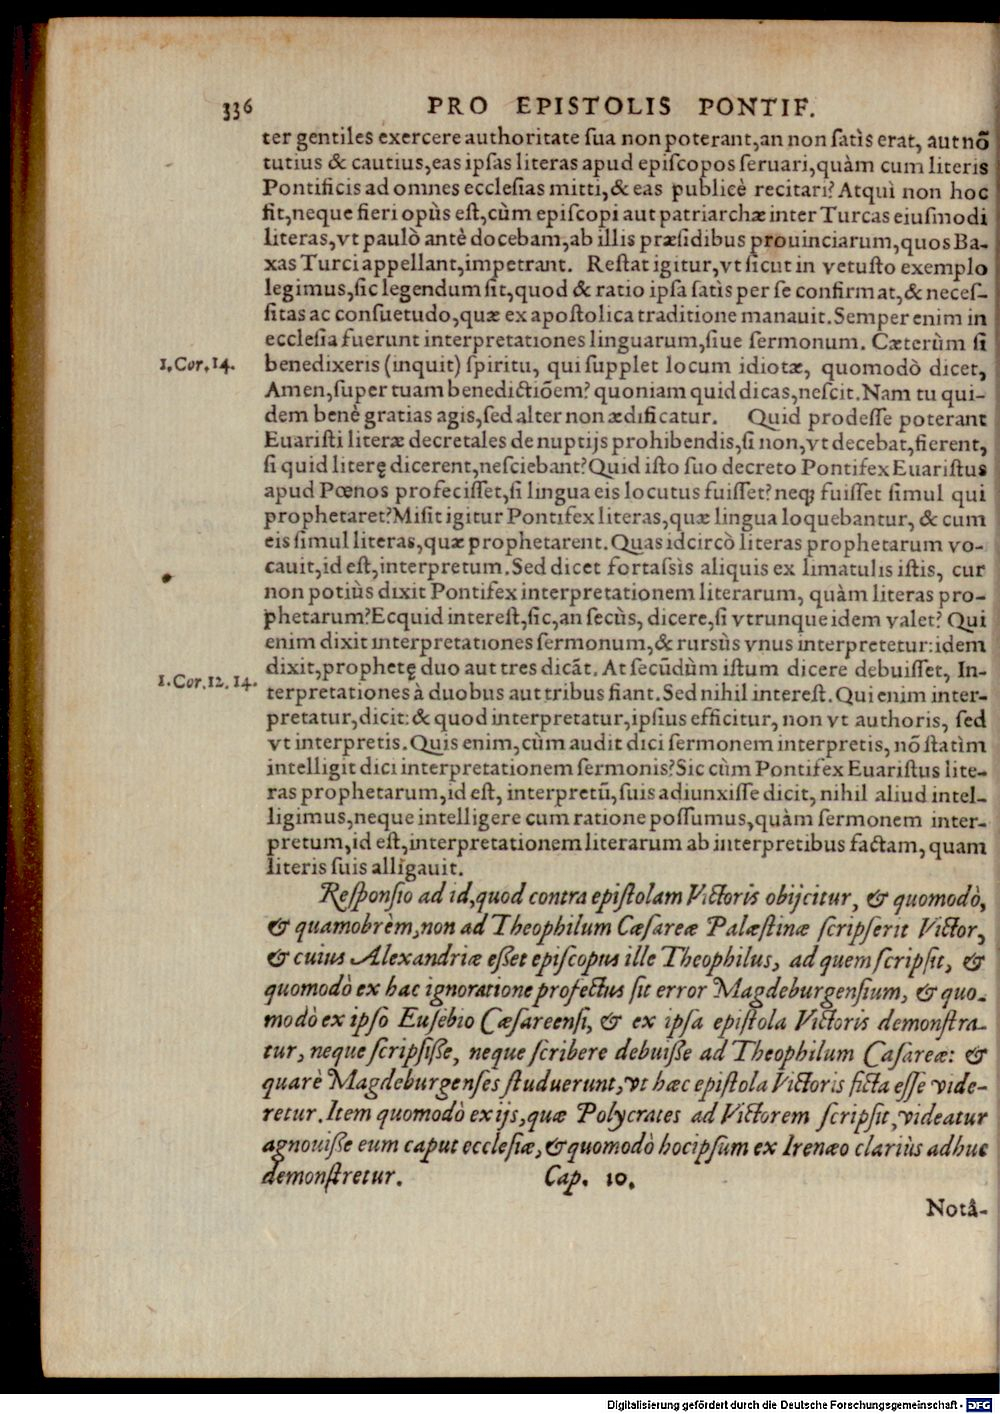 336 PRO EPISTOLIS PONTIF.
ter gentiles exercere authoritate ſua non poterant,an non ſatis erat, aut nō
tutius & cautius,eas ipſas literas apud epiſcopos ſeruari,quàm cum literis
Pontificis ad omnes eccleſias mitti,& eas publicè recitari? Atquì non hoc
fit,neque fieri opùs eſt,cùm epiſcopi aut patriarchæ inter Turcas eiuſmodi
literas,vt paulò antè docebam,ab illis præſidibus prouinciarum,quos Ba-
xas Turci appellant,impetrant. Reſtat igitur,vt ſicut in vetuſto exemplo
legimus,ſic legendum ſit,quod & ratio ipſa ſatìs per ſe confirmat,& neceſ-
ſitas ac conſuetudo,quæ ex apoſtolica traditione manauit.Semper enim in
eccleſia fuerunt interpretationes linguarum,ſiue ſermonum. Cæterùm ſi
1.Cor.14. benedixeris (inquit) ſpiritu, qui ſupplet locum idiotæ, quomodò dicet,
Amen,ſuper tuam benedictiōem? quoniam quid dicas,neſcit.Nam tu qui-
dem benè gratias agis,ſed alter non ædificatur. Quid prodeſſe poterant
Euariſti literæ decretales de nuptijs prohibendis,ſi non,vt decebat,fierent,
ſi quid literę dicerent,neſciebant?Quid iſto ſuo decreto Pontifex Euariſtus
apud Pœnos profeciſſet,ſi lingua eis locutus fuiſſet? neq; fuiſſet ſimul qui
prophetaret?Miſit igitur Pontifex literas,quæ lingua loquebantur, & cum
eis ſimul literas,quæ prophetarent.Quas idcircò literas prophetarum vo-
cauit,id eſt,interpretum.Sed dicet fortaſsìs aliquis ex limatulis iſtis, cur
non potiùs dixit Pontifex interpretationem literarum, quàm literas pro-
phetarum?Ecquid intereſt,ſic,an ſecùs, dicere,ſi vtrunque idem valet? Qui
enim dixit interpretationes ſermonum,& rurſùs vnus interpretetur:idem
dixit,prophetę duo aut tres dicāt. At ſecūdùm iſtum dicere debuiſſet, In-
1.Cor.12.14. terpretationes à duobus aut tribus fiant.Sed nihil intereſt.Qui enim inter-
pretatur,dicit:& quod interpretatur,ipſius efficitur, non vt authoris, ſed
vt interpretis.Quis enim,cùm audit dici ſermonem interpretis, nō ſtatìm
intelligit dici interpretationem ſermonis?Sic cùm Pontifex Euariſtus lite-
ras prophetarum,id eſt, interpretū,ſuis adiunxiſſe dicit, nihil aliud intel-
ligimus,neque intelligere cum ratione poſſumus,quàm ſermonem inter-
pretum,id eſt,interpretationem literarum ab interpretibus factam, quam
literis ſuis alligauit.
Reſponſio ad id,quod contra epiſtolam Victoris obijcitur, & quomodò,
& quamobrèm,non ad Theophilum Cæſareæ Palæſtinæ ſcripſerit Victor,
& cuius Alexandriæ eſſet epiſcopus ille Theophilus, ad quem ſcripſit, &
quomodò ex hac ignoratione profectus ſit error Magdeburgenſium, & quo-
modò ex ipſo Euſebio Cæſareenſi, & ex ipſa epiſtola Victoris demonſtra-
tur, neque ſcripſiſſe, neque ſcribere debuiſſe ad Theophilum Caſareæ: &
quarè Magdeburgenſes ſtuduerunt,vt hæc epiſtola Victoris ficta eſſe vide-
retur.Item quomodò ex ijs,quæ Polycrates ad Victorem ſcripſit,videatur
agnouiſſe eum caput eccleſiæ,& quomodò hocipſum ex Irenæo clariùs adhuc
demonſtretur. Cap. 10.
Notâ-
Digitalisierung gefördert durch die Deutsche Forschungsgemeinschaft - DFG